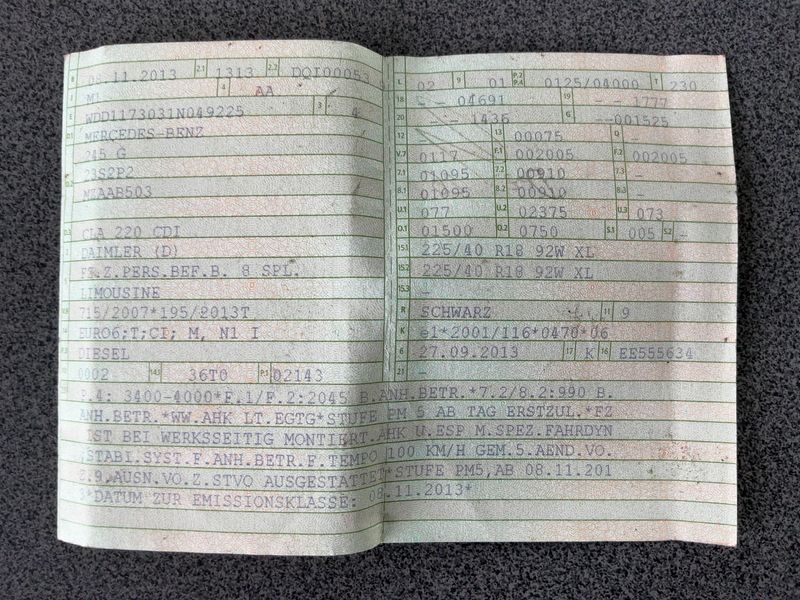 B 08.11.2013 2.1 1313 2.2 DQI00053
J M1 4 AA
E WDD1173031N049225 3 - 4
D.1 MERCEDES-BENZ
245 G
D.2 23S2P2
MZAAB503
D.3 CLA 220 CDI
2 DAIMLER (D)
5 FZ.Z.PERS.BEF.B. 8 SPL.
LIMOUSINE
V.9 715/2007*195/2013T
14 EURO6;T;CI; M, N1 I
P.3 DIESEL
10 0002 14.1 36T0 P.1 02143
L 02 9 01 P.2 P.4 0125/04000 T 230
18 - - 04691 19 - - 1777
20 - - 1436 G --001525
12 - 13 00075 Q -
V.7 0117 F.1 002005 F.2 002005
7.1 01095 7.2 00910 7.3 -
8.1 01095 8.2 00910 8.3 -
U.1 077 U.2 02375 U.3 073
O.1 01500 O.2 0750 S.1 005 S.2 -
15.1 225/40 R18 92W XL
15.2 225/40 R18 92W XL
15.3 -
R SCHWARZ 11 9
K e1*2001/116*0470*06
6 27.09.2013 17 K 16 EE555634
21 -
P.4: 3400-4000*F.1/F.2:2045 B.ANH.BETR.*7.2/8.2:990 B.
ANH.BETR.*WW.AHK LT.EGTG*STUFE PM 5 AB TAG ERSTZUL.*FZ
IST BEI WERKSSEITIG MONTIERT.AHK U.ESP M.SPEZ.FAHRDYN
.STABI.SYST.F.ANH.BETR.F.TEMPO 100 KM/H GEM.5.AEND.VO.
Z.9.AUSN.VO.Z.STVO AUSGESTATTET*STUFE PM5,AB 08.11.201
3*DATUM ZUR EMISSIONSKLASSE: 08.11.2013*